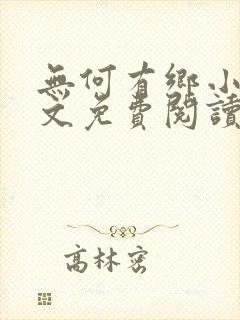 無何有鄉小
文免費閱讀
高林密